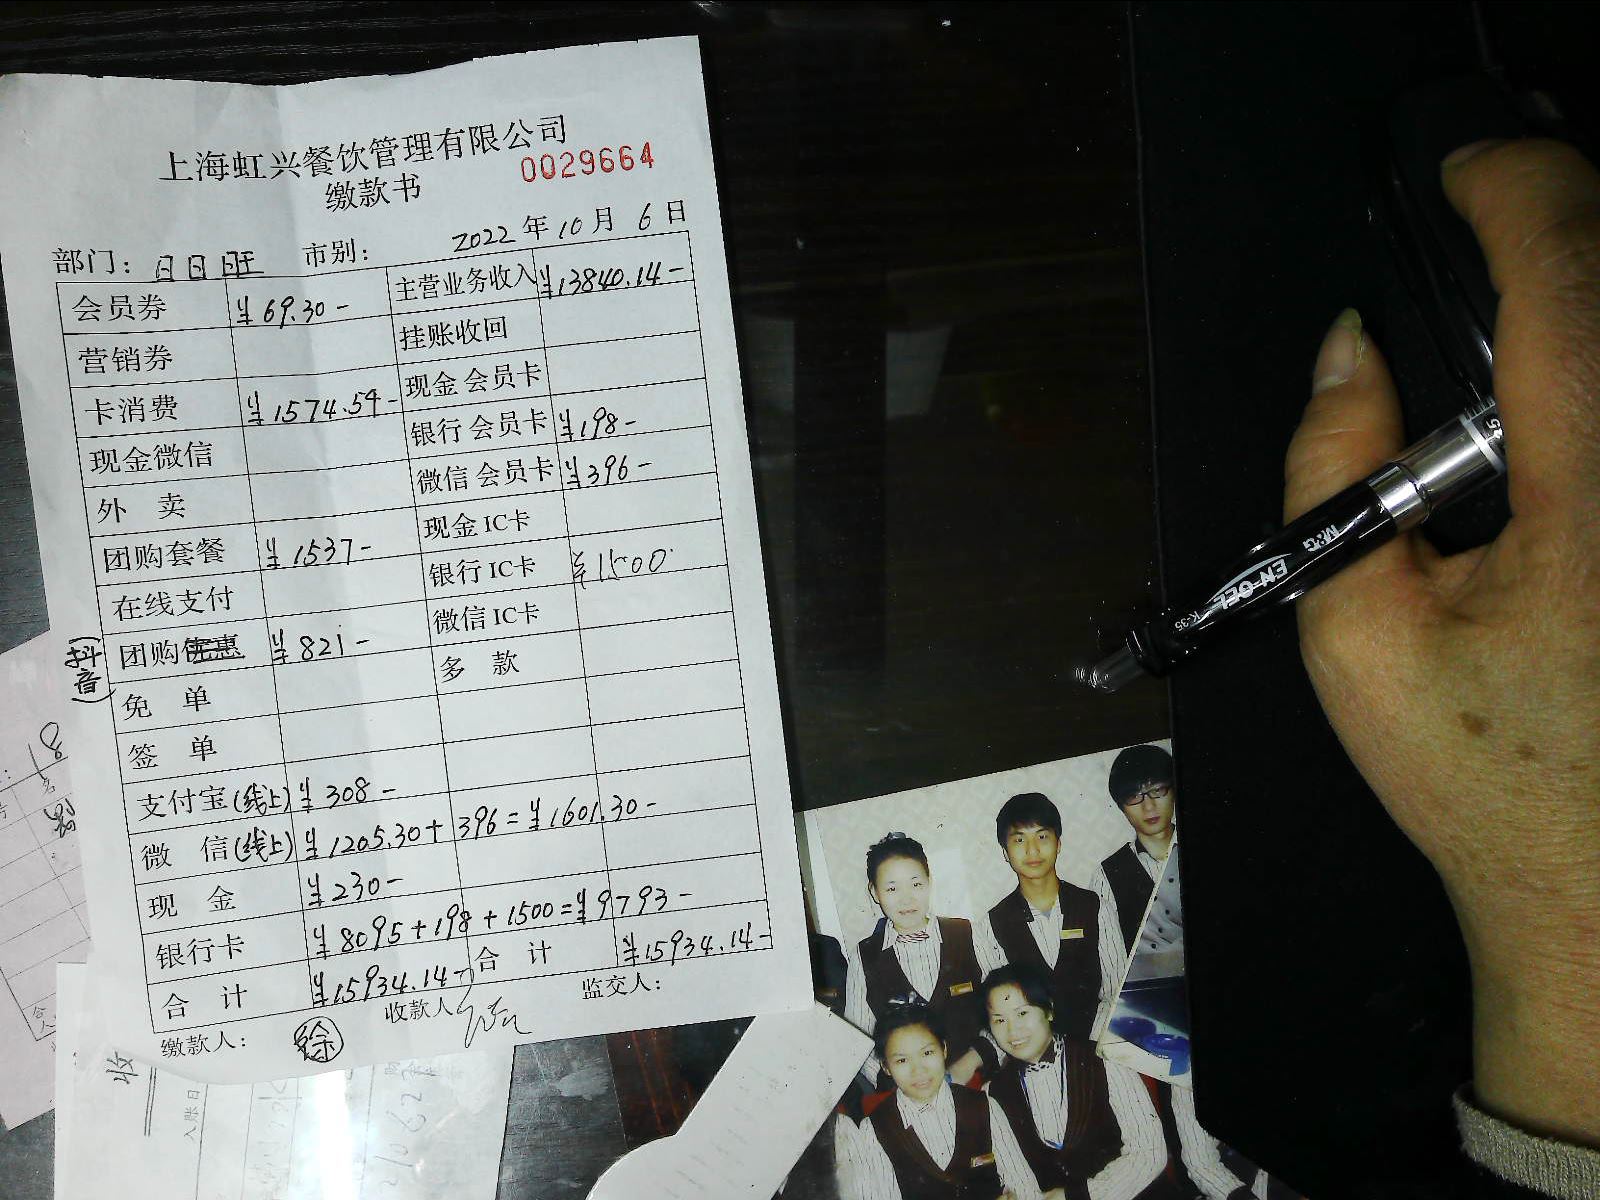 上海虹兴餐饮管理有限公司
缴款书
0029664
部门: 日日旺 市别: 2022 年 10 月 6 日
会员券 ¥69.30- 主营业务收入 ¥13840.14-
营销券 挂账收回
卡消费 ¥1574.54- 现金会员卡
现金微信 银行会员卡 ¥198-
外卖 微信会员卡 ¥396-
团购套餐 ¥1537- 现金IC卡
在线支付 银行IC卡 ¥1500
(抖音) 团购优惠 ¥821- 微信IC卡
免单 多款
签单
支付宝(线上) ¥308-
微信(线上) ¥1205.30+396=¥1601.30-
现金 ¥230-
银行卡 ¥8095+198+1500=¥9793-
合计 ¥15934.14- 合计 ¥15934.14-
缴款人: 徐 收款人 监交人:
收
入账日
M&G
EN-GEL
K-35